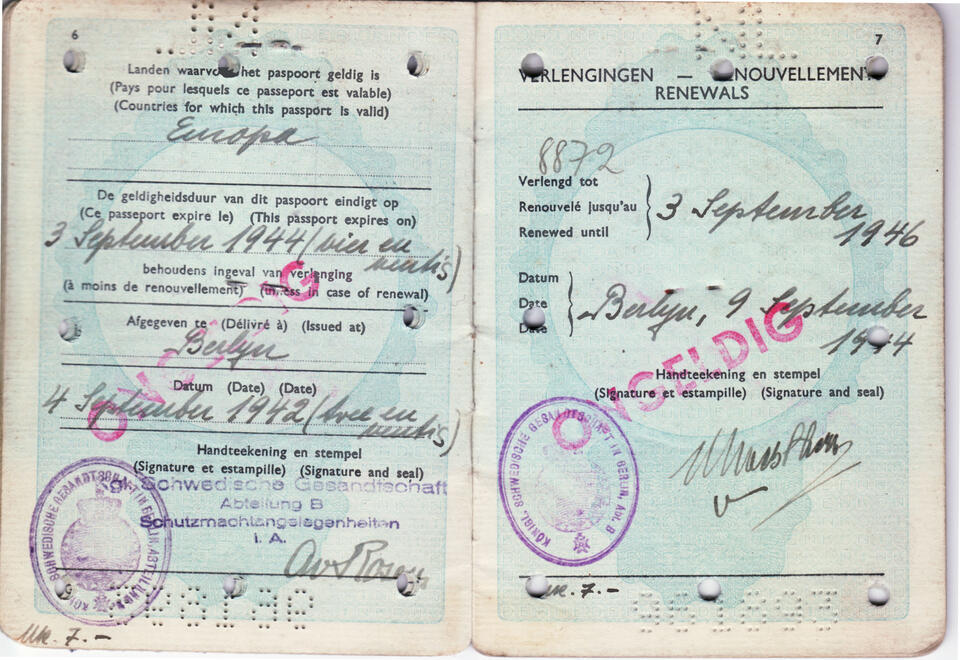 6
Landen waarvoor het paspoort geldig is
(Pays pour lesquels ce passeport est valable)
(Countries for which this passport is valid)
Europa
De geldigheidsduur van dit paspoort eindigt op
(Ce passeport expire le) (This passport expires on)
3 September 1944 (vier en
veertig)
behoudens ingeval van verlenging
(à moins de renouvellement) (unless in case of renewal)
Afgegeven te (Délivré à) (Issued at)
Berlijn
Datum (Date) (Date)
4 September 1942 (twee en
veertig)
Handteekening en stempel
(Signature et estampille) (Signature and seal)
Kgl. Schwedische Gesandtschaft
Abteilung B
Schutzmachtangelegenheiten
i. A.
ONGELDIG
Mk. 7.-
7
VERLENGINGEN — RENOUVELLEMENTS
RENEWALS
8872
Verlengd tot
Renouvelé jusqu'au
Renewed until
3 September
1946
Datum
Date
Date
Berlijn, 9 September
1944
ONGELDIG
Handteekening en stempel
(Signature et estampille) (Signature and seal)
KÖNIGL. SCHWEDISCHE GESANDTSCHAFT IN BERLIN, Abt. B
Mk. 7.-